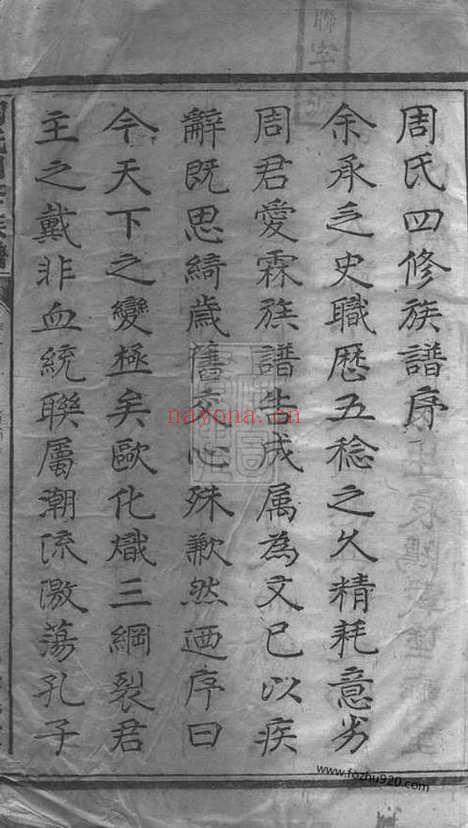 周氏四修族譜序
余承乏史職歷五稔之久精耗意劣
周君愛霖族譜告成属為文已以疾
辭既思綺歲舊交心殊歉然迺序曰
今天下之變極矣歐化熾三綱裂君
主之戴非血統聯屬潮流激蕩孔子
nayona.cn
www.fozhu920.com